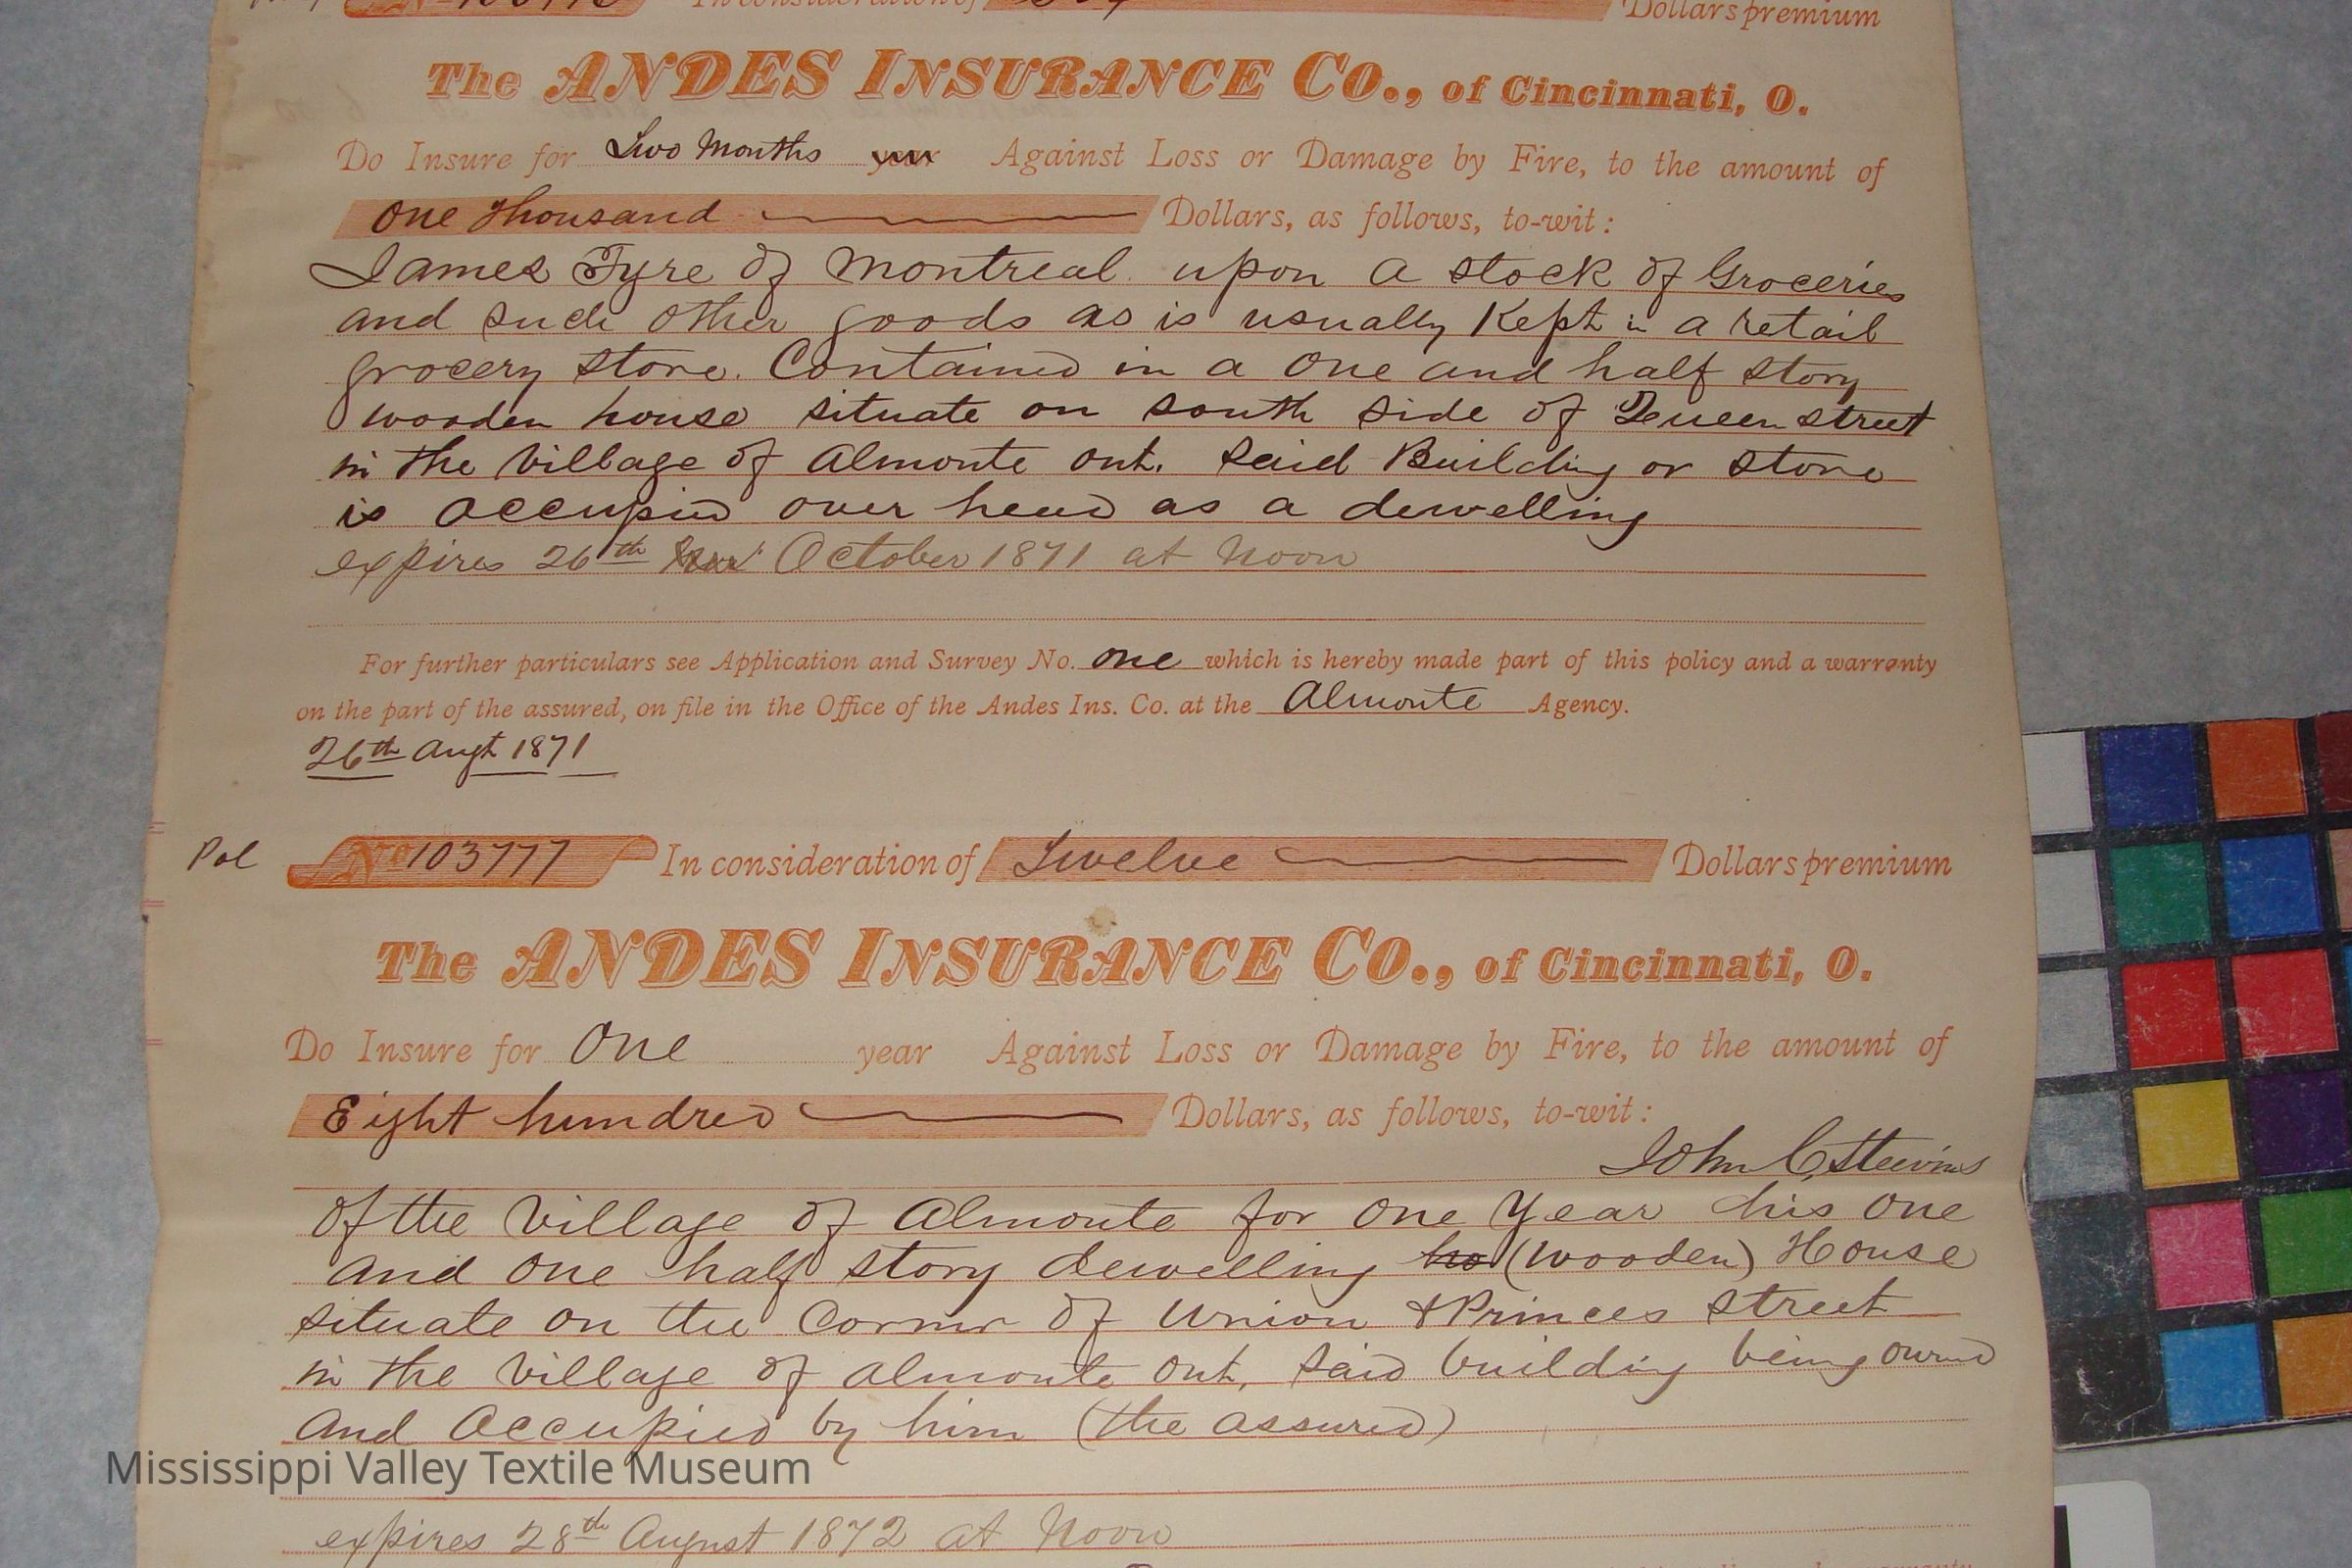 In consideration of Dollars premium
The ANDES INSURANCE CO., of Cincinnati, O.
Do Insure for Two Months year Against Loss or Damage by Fire, to the amount of
One Thousand Dollars, as follows, to-wit:
James Tyre of Montreal upon a stock of Groceries
and such other goods as is usually Kept in a retail
grocery store. Contained in a One and half story
wooden house situate on south side of Queen street
in the Village of Almonte Ont. Said Building or store
is occupied over head as a dewelling
expires 26th October 1871 at Noon
For further particulars see Application and Survey No. One which is hereby made part of this policy and a warranty
on the part of the assured, on file in the Office of the Andes Ins. Co. at the Almonte Agency.
26th Augt 1871
Pol No 103777 In consideration of Twelve Dollars premium
The ANDES INSURANCE CO., of Cincinnati, O.
Do Insure for One year Against Loss or Damage by Fire, to the amount of
Eight hundred Dollars, as follows, to-wit:
John C,
of the Village of Almonte for One Year his One
and One half story dewelling ho (Wooden) House
situate on the Corner of Union & Princes street
in the Village of Almonte Ont, Said building being owned
and Occupied by him (the assured)
Mississippi Valley Textile Museum
expires 28th August 1872 at Noon